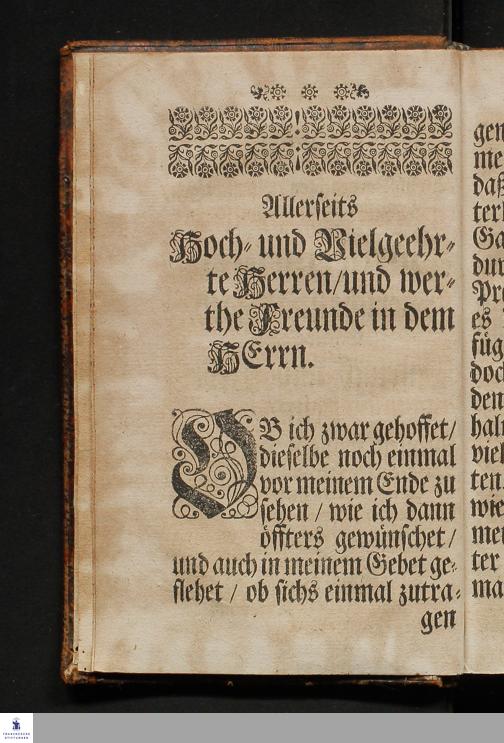 Allerseits
Hoch- und Vielgeehr-
te Herren/und wer-
the Freunde in dem
HErrn.
OB ich zwar gehoffet/
dieselbe noch einmal
vor meinem Ende zu
sehen / wie ich dann
öffters gewünschet /
und auch in meinem Gebet ge-
flehet / ob sichs einmal zutra-
gen
gen
me
daß
ter
Ga
dur
Pro
es
füg
doc
den
hal
viel
ten.
wie
me
ter
ma
FRANCKESCHE
STIFTUNGEN